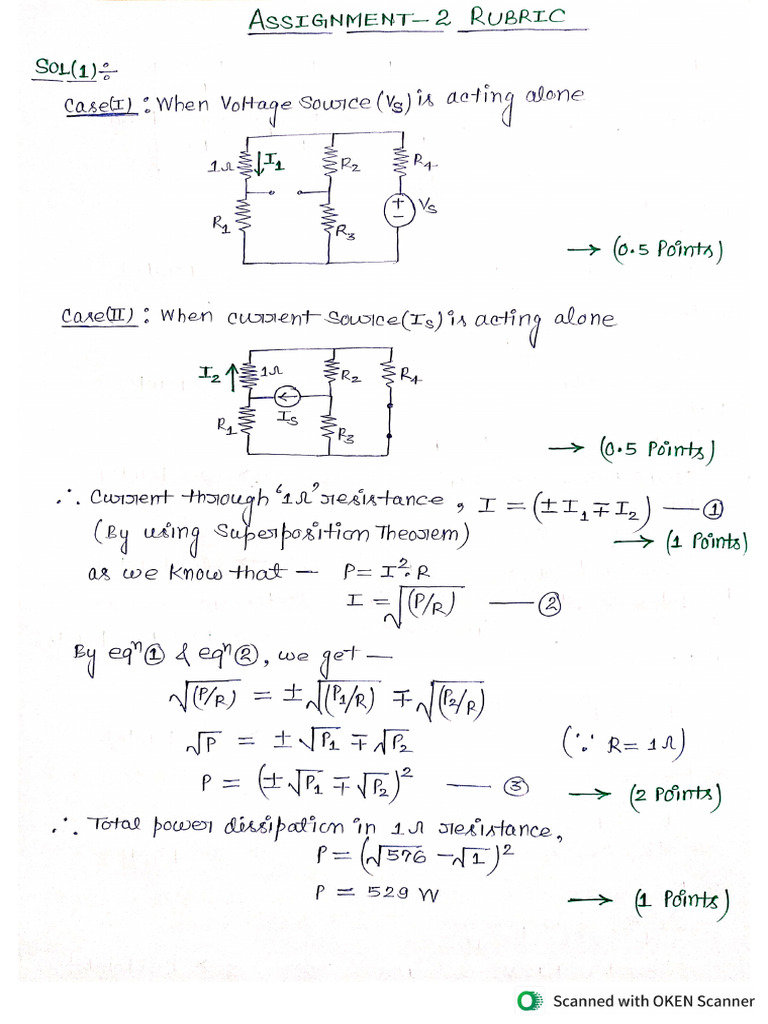 ASSIGNMENT-2 RUBRIC
SOL(1)÷
Case(I): When Voltage Source (Vs) is acting alone
1Ω I1 R2 R4
R1 R3 + − Vs
→ (0.5 Points)
Case(II): When current Source (Is) is acting alone
I2 1Ω R2 R4
R1 Is R3
→ (0.5 Points)
∴ Current through '1Ω' resistance, I = (±I1∓I2) — ①
(By using Superposition Theorem) → (1 Points)
as we know that — P = I².R
I = √(P/R) — ②
By eqn① & eqn②, we get —
√(P/R) = ±√(P1/R) ∓ √(P2/R)
√P = ±√P1 ∓ √P2 (∵ R = 1Ω)
P = (±√P1 ∓ √P2)² — ③ → (2 Points)
∴ Total power dissipation in 1Ω resistance,
P = (√576 − √1)²
P = 529 W → (1 Points)
Scanned with OKEN Scanner